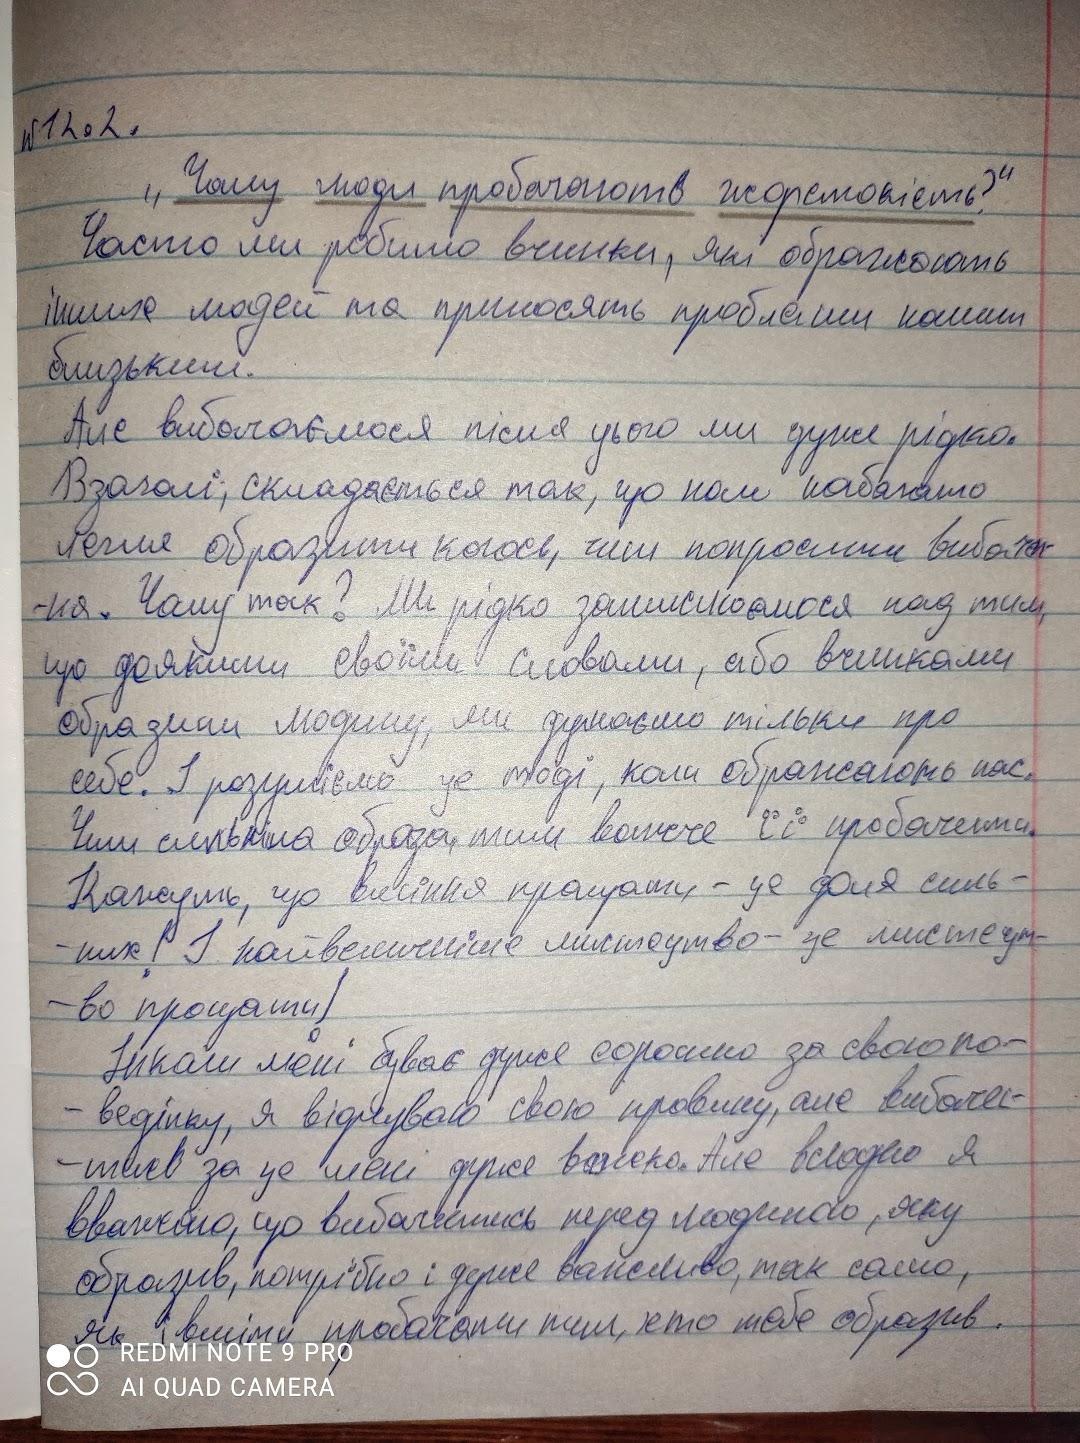 №12.2.
„Чому люди пробачають жорстокість?"
Часто ми робимо вчинки, які ображають
інших людей та приносять проблеми нашим
близьким.
Але вибачаємося після цього ми дуже рідко.
Взагалі, складається так, що нам набагато
легше образити когось, чим попросити вибачен
-ня. Чому так? Ми рідко замислюємося над тим,
що деякими своїми словами, або вчинками
образили людину, ми думаємо тільки про
себе. І розуміємо це тоді, коли ображають нас.
Чим сильніша образа, тим важче її пробачити.
Кажуть, що вміння прощати - це доля силь-
-них! І найвеличніше мистецтво - це мистецт-
-во прощати!
Інколи мені буває дуже соромно за свою по-
-ведінку, я відчуваю свою провину, але вибачи-
-тись за це мені дуже важко. Але всеодно я
вважаю, що вибачитись перед людиною, яку
образив, потрібно і дуже важливо, так само,
як і вміти пробачати тим, хто тебе образив.
REDMI NOTE 9 PRO
AI QUAD CAMERA